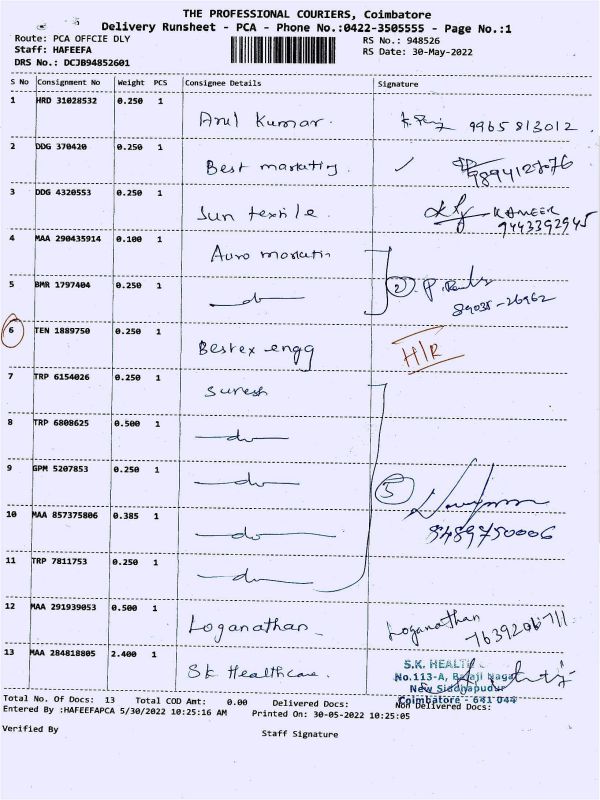 THE PROFESSIONAL COURIERS, Coimbatore
Delivery Runsheet - PCA - Phone No.:0422-3505555 - Page No.:1
Route: PCA OFFCIE DLY RS No.: 948526
Staff: HAFEEFA RS Date: 30-May-2022
DRS No.: DCJB94852601
S No Consignment No Weight PCS Consignee Details Signature
1 HRD 31028532 0.250 1 Arul Kumar. 9965813012.
2 DDG 370420 0.250 1 Best marketing.
3 DDG 4320553 0.250 1 Sun textile. KAMEER
9443392945
4 MAA 290435914 0.100 1 Auro marketin
5 BMR 1797404 0.250 1 do 2
89035-26962
6 TEN 1889750 0.250 1 Bestex engg H/R
7 TRP 6154026 0.250 1 Suresh
8 TRP 6808625 0.500 1 do
9 GPM 5207853 0.250 1 do 5
10 MAA 857375806 0.385 1 do 8489750006
11 TRP 7811753 0.250 1 do
12 MAA 291939053 0.500 1 Loganathan Loganathan
7639206711
13 MAA 284818805 2.400 1 SK Healthcare. S.K. HEALTH
No.113-A, Balaji Nagar
New Siddhapudur
Coimbatore - 641 044
Total No. Of Docs: 13 Total COD Amt: 0.00 Delivered Docs: Non Delivered Docs:
Entered By :HAFEEFAPCA 5/30/2022 10:25:16 AM Printed On: 30-05-2022 10:25:05
Verified By Staff Signature